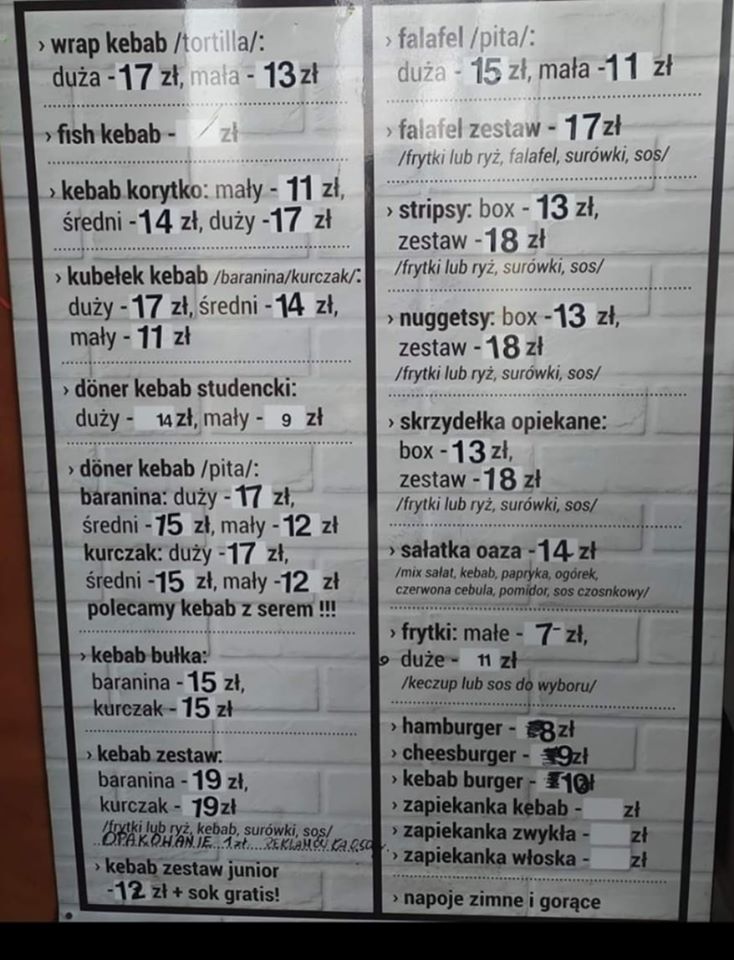 › wrap kebab /tortilla/:
duża - 17 zł, mała - 13 zł
› fish kebab - zł
› kebab korytko: mały - 11 zł,
średni - 14 zł, duży - 17 zł
› kubełek kebab /baranina/kurczak/:
duży - 17 zł, średni - 14 zł,
mały - 11 zł
› döner kebab studencki:
duży - 14 zł, mały - 9 zł
› döner kebab /pita/:
baranina: duży - 17 zł,
średni - 15 zł, mały - 12 zł
kurczak: duży - 17 zł,
średni - 15 zł, mały - 12 zł
polecamy kebab z serem !!!
› kebab bułka:
baranina - 15 zł,
kurczak - 15 zł
› kebab zestaw:
baranina - 19 zł,
kurczak - 19 zł
/frytki lub ryż, kebab, surówki, sos/
OPAKOWANIE 1 zł REKLAMÓWKA
› kebab zestaw junior
- 12 zł + sok gratis!
› falafel /pita/:
duża - 15 zł, mała - 11 zł
› falafel zestaw - 17 zł
/frytki lub ryż, falafel, surówki, sos/
› stripsy: box - 13 zł,
zestaw - 18 zł
/frytki lub ryż, surówki, sos/
› nuggetsy: box - 13 zł,
zestaw - 18 zł
/frytki lub ryż, surówki, sos/
› skrzydełka opiekane:
box - 13 zł,
zestaw - 18 zł
/frytki lub ryż, surówki, sos/
› sałatka oaza - 14 zł
/mix sałat, kebab, papryka, ogórek,
czerwona cebula, pomidor, sos czosnkowy/
› frytki: małe - 7- zł,
duże - 11 zł
/keczup lub sos do wyboru/
› hamburger - 8 zł
› cheesburger - 9 zł
› kebab burger - 10 zł
› zapiekanka kebab - zł
› zapiekanka zwykła - zł
› zapiekanka włoska - zł
› napoje zimne i gorące